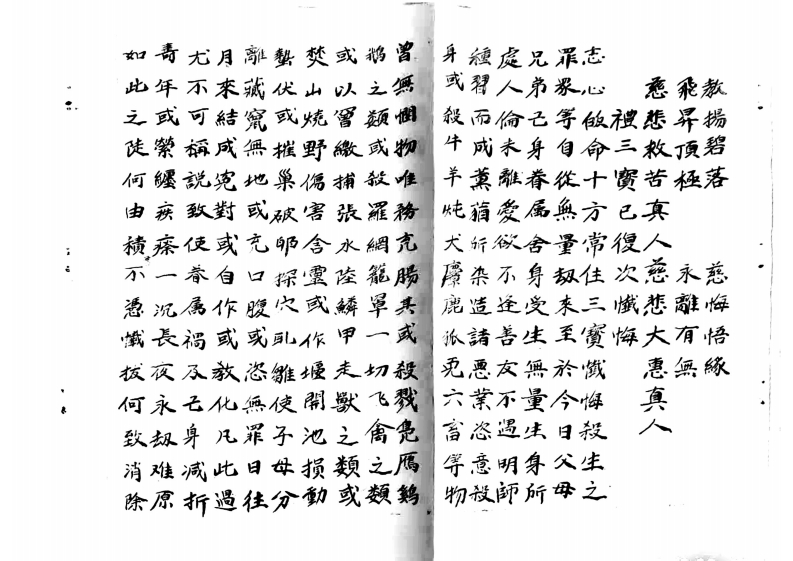 教揚碧落　慈悔悟緣
飛昇頂極　永離有無
慈悲救苦真人慈悲大惠真人
禮三寶已復次懺悔
志心皈命十方常住三寶懺悔殺生之
罪某等自從無量劫來至於今日父母
兄弟己身眷属舍身受生無量生身所
處人倫未離愛欲不逢善友不遇明師
種習而成薰蕕所染造諸悪業恣意殺
身或殺牛羊炖犬麞鹿狐兎六畜等物
曾無憫物唯務充腸其或殺戮鳧鴈鷄
鵝之類或殺羅網籠罩一切飞禽之類
或以罾繳捕張水陸鱗甲走獸之類或
焚山燒野傷害含靈或作堰開池損動
蟄伏或摧巢破卵探穴乳雛使子母分
離藏竄無地或充口腹或恣無罪日往
月來結成冤對或自作或教化凡此過
尤不可稱説致使眷属禍及己身减折
壽年或縈纒疾瘵一沉長夜永劫难原
如此之徒何由積不憑懺拔何致消除